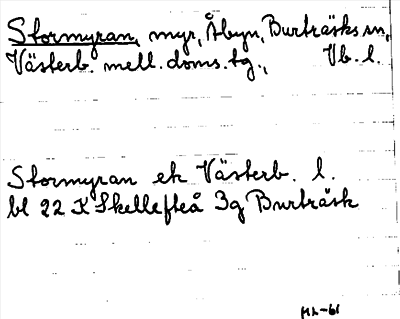 Stormyran, myr, Åbyn, Burträsks sn,
Västerb. mell. doms. tg., Vb. l.
Stormyran ek Västerb. l.
bl 22 K Skellefteå 3g Burträsk
HL-61